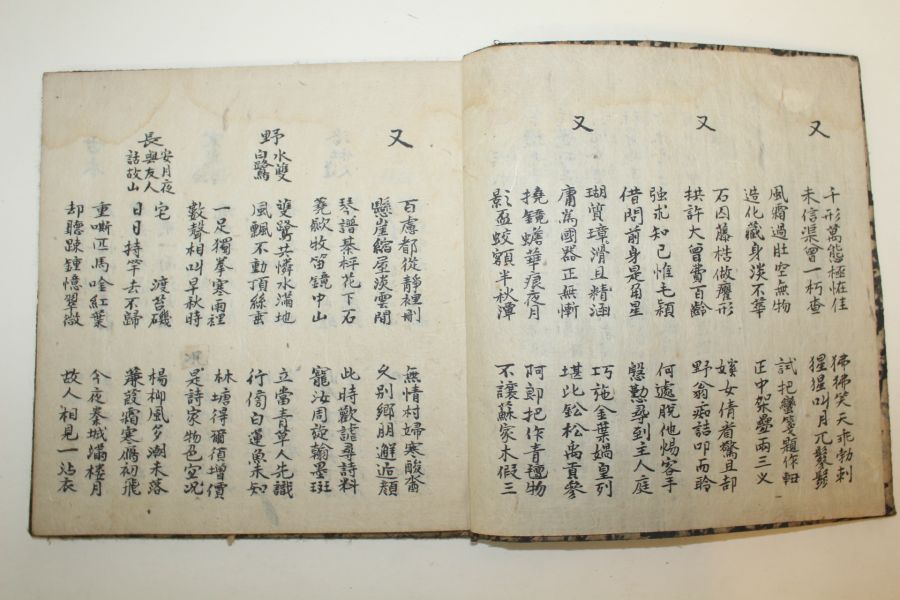 又
千形萬態極恠佳 狒狒笑天乖勃剌
未信渠曾一朽查 猩猩叫月兀鬅鬙
風霜過肚空無物 試把蠻箋題作軸
造化藏身淡不華 正中架疊兩三义
又
石囚藤梏做癭形 嫁女倩者驚且却
拱許大曾費百齡 野翁痴詰叩而聆
強求知己惟毛穎 何處脫他惕客手
借問前身是角星 慇懃尋到主人庭
又
瑚簧璋滑且精涵 巧施金葉媧皇列
庸萬國器正無慚 堪比鈆松禹貢參
撓鏡蟾華痕夜月 阿郎把作青氊物
影盃蛟額半秋潭 不讓蘇家木假三
又
百慮都從靜裡刪 無情村婦寒酸
懸崖縮屋淡雲閒 久別鄉朋邂逅顏
琴譜棊枰花下石 此時歡謔尋詩料
蓑歗牧笛鏡中山 寵汝周旋翰墨斑
野水雙白鷺
雙鷺共憐水滿地 立當青草人先識
風飄不動頂絲 行傍白蓮魚未知
一足獨拳寒雨裡 林塘得爾須增價
數聲相叫早秋時 是詩家物色宜況
長安月夜與友人話故山
宅 渡苔磯 楊柳風多潮未落
日日持竿去不歸 蒹葭霜寒鴈初飛
重嘶匹馬唫紅葉 今夜秦城滿樓月
却聽踈鍾憶翠微 故人相見一沾衣